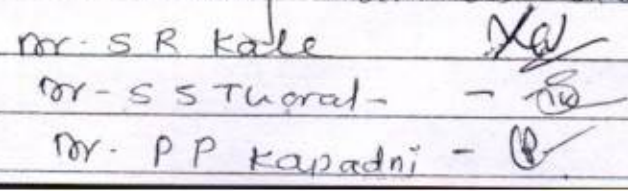 Dr. S R Kale
Dr - S S Thorat -
Dr. P P Kapadni -